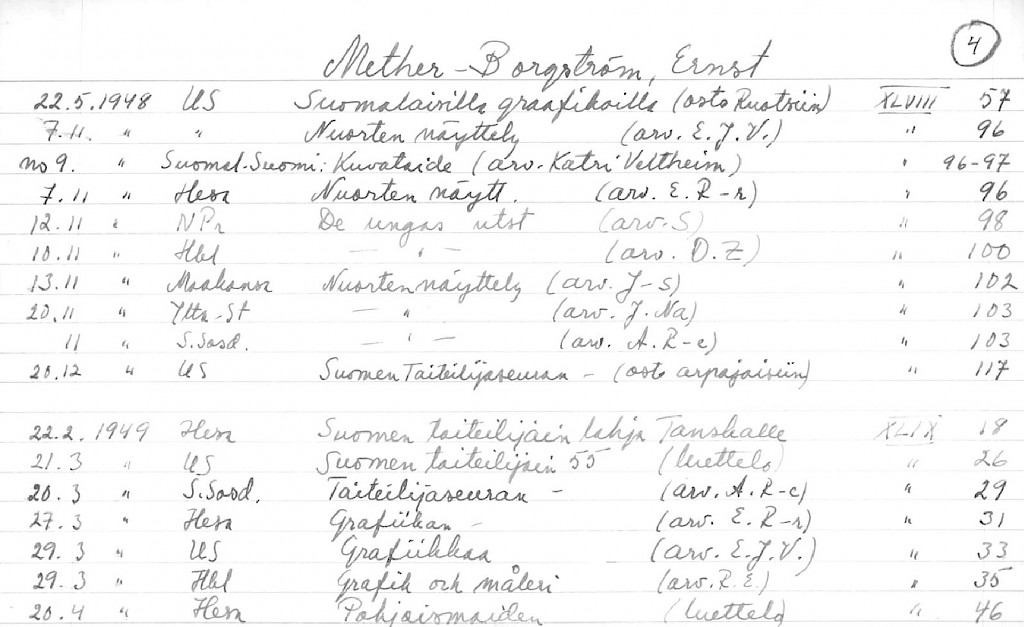 4
Mether-Borgström, Ernst
22.5.1948 US Suomalaisilla graafikoilla (osto Ruotsiin) XLVIII 57
7.11. " " Nuorten näyttely (arv. E.J.V.) " 96
no 9. " Suomal.Suomi: Kuvataide (arv. Katri Veltheim) " 96-97
7.11 " Hesa Nuorten näytt. (arv. E.R-r) " 96
12.11 " NPr De ungas utst (arv. S) " 98
10.11 " Hbl — " — (arv. D.Z) " 100
13.11 " Maakansa Nuorten näyttely (arv. J-s) " 102
20.11 " Ilta-St — " (arv. J.Na) " 103
11 " S.Sosd. — " — (arv. A.R-c) " 103
20.12 " US Suomen Taiteilijaseuran - (osto arpajaisiin) " 117
22.2.1949 Hesa Suomen taiteilijain lahja Tanskalle XLIX 18
21.3 " US Suomen taiteilijain 55 (luettelo) " 26
20.3 " S.Sosd. Taiteilijaseuran - (arv. A.R-c) " 29
27.3 " Hesa Grafiikan - (arv. E.R-r) " 31
29.3 " US Grafiikkaa (arv. E.J.V.) " 33
29.3 " Hbl Grafik och måleri (arv. R.E.) " 35
20.4 " Hesa Pohjoismaiden (luettelo) " 46